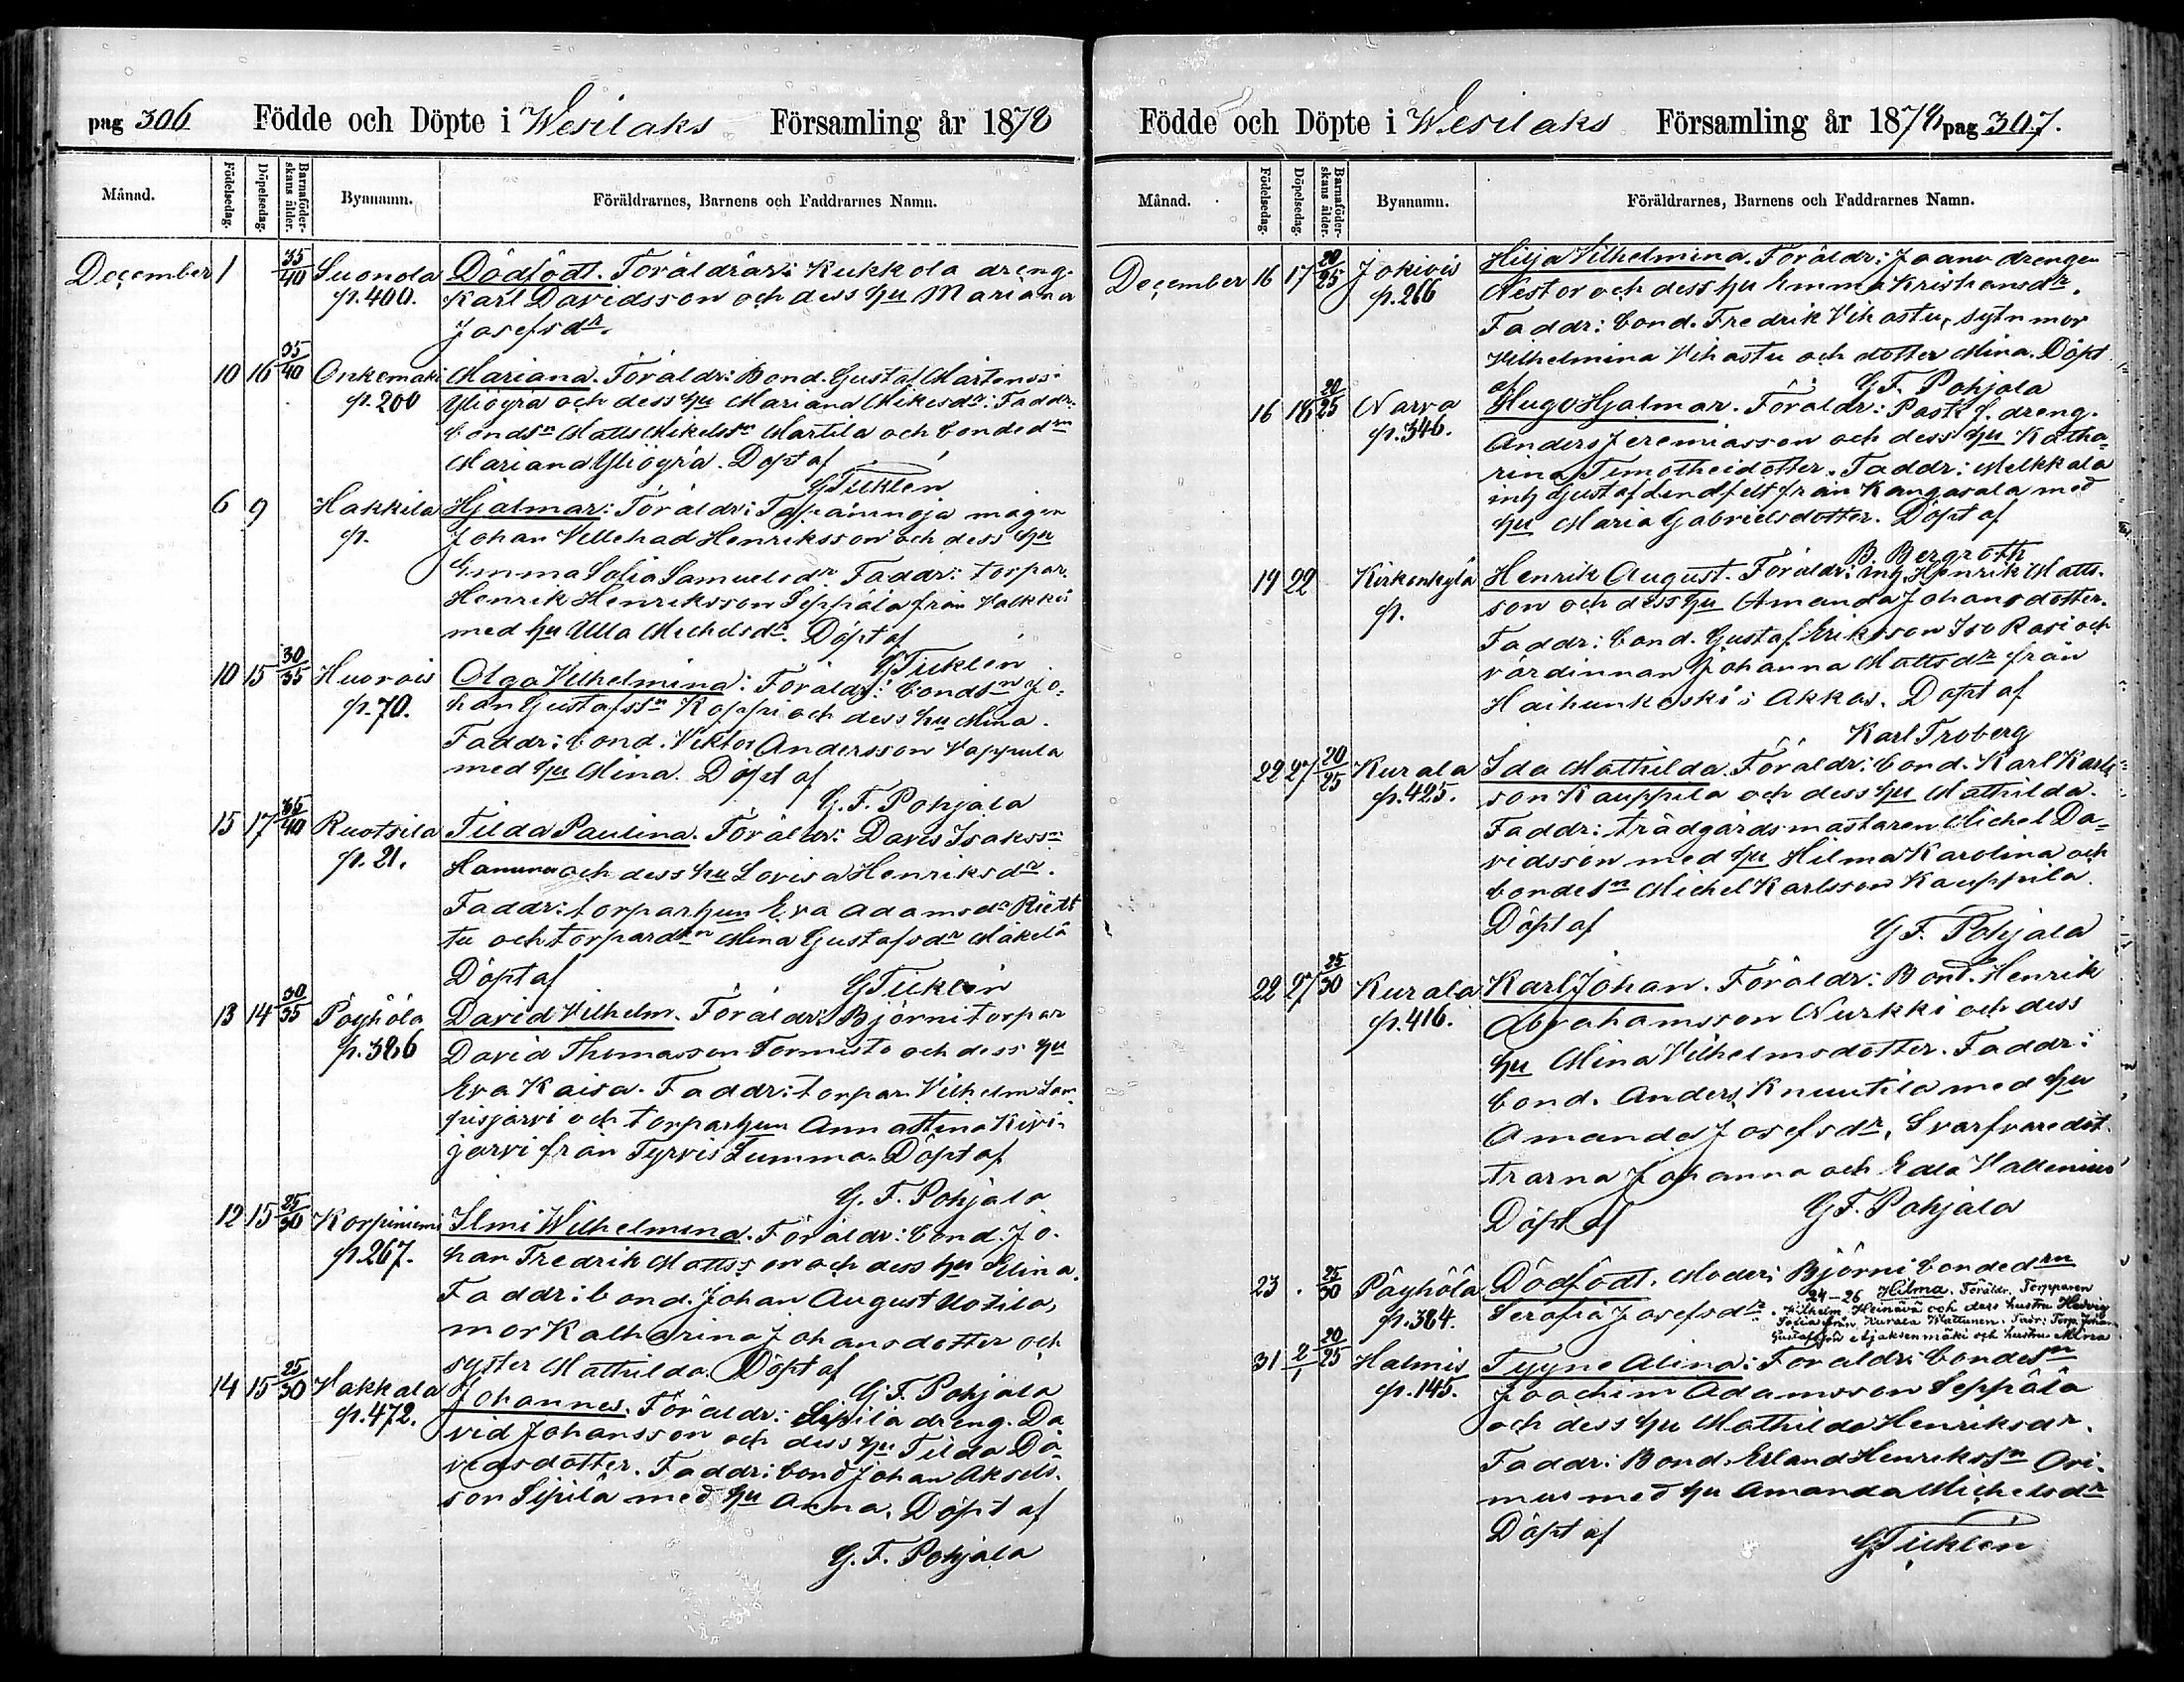 pag 306 Födde och Döpte i Wesilaks Församling år 1878
Månad.
Födelsedag.
Döpelsedag.
Barnaföderskans ålder.
Bynnamn.
Föräldrarnes, Barnens och Faddrarnes Namn.
December 1 35/40 Suonola Dödfödt. Föräldrar: Kukkola dreng.
p. 400. Karl Davidsson och dess hu Mariana
Josefsdr.
10 16 35/40 Onkemäki Mariana. Föräldr: Bond. Gustaf Mårtenss:
p. 200 Yliöyrä och dess hu Mariana Mikesdr: Faddr:
bondsn Matts Mikelssn Martila och bondedrn
Mariana Yliöyrä. Döpt af
G Ticklén
6 9 Hakkila Hjalmar: Föräldr: mågen
p. Johan Villehad Henriksson och dess hu
Emma Sofia Samuelsdr Faddr: torpar.
Henrik Henriksson Seppälä från Valkkis
med hu Ulla Michelsdr. Döpt af
G Ticklén
10 15 30/35 Huorois Olga Vilhelmina: Föräldr: bondsn Jo-
p. 70. han Gustafssn Koppi och dess hu Mina.
Faddr: bond. Viktor Andersson Vappula
med hu Mina. Döpt af
G. F. Pohjala
15 17 35/40 Ruotsila Tilda Paulina. Föräldr: David Isakssn
p. 21. Hannu och dess hu Lovisa Henriksdr.
Faddr: torparhun Eva Adamsdr Riett
tu och torpardrn Mina Gustafsdr Mäkelä
Döpt af G Ticklén
13 14 30/35 Pöyhölä David Vilhelm. Föräldr: Björni torpar
p. 386 David Thomasson Tormisto och dess hu
Eva Kaisa. Faddr: torpar. Vilhelm Lam
pisjärvi och torparhun Anna Stina Kivi-
järvi från Tyrvis Lumma. Döpt af
G. F. Pohjala
12 15 25/30 Korpiniemi Ilmi Wilhelmina. Föräldr: bond. Jo-
p. 267. han Fredrik Mattsson och dess hu Mina.
Faddr: bond. Johan August Uotila,
mor Katharina Johansdotter och
syster Mathilda. Döpt af
G. F. Pohjala
14 15 25/30 Vakkala Johannes. Föräldr: Sipilä dreng. Da
p. 472. vid Johansson och dess hu Tilda Da-
vidsdotter. Faddr: bond Johan Aksels-
son Sipilä med hu Anna. Döpt af
G. F. Pohjala
Födde och Döpte i Wesilaks Församling år 1878 pag 307.
Månad.
Födelsedag.
Döpelsedag.
Barnaföderskans ålder.
Bynnamn.
Föräldrarnes, Barnens och Faddrarnes Namn.
December 16 17 20/25 Jokiois Hilja Vilhelmina. Föräldr: Jaanu drengen
p. 266 Nestor och dess hu Emma Kristiansdr.
Faddr: bond. Fredrik Vihastu, sytn mor
Vilhelmina Vihastu och dotter Mina. Döpt
af G. F. Pohjala
16 18 20/25 Narva Hugo Hjalmar. Föräldr: Post f. dreng.
p. 346. Anders Jeremiasson och dess hu Katha-
rina Timotheidotter. Faddr: Melkkala
inh Gustaf Lindfelt från Kangasala med
hu Maria Gabrielsdotter. Döpt af
B Bergroth
19 22 Kirkonkylä Henrik August. Föräldr: inh. Henrik Matts-
p. son och dess hu Amanda Johansdotter.
Faddr: bond. Gustaf Eriksson Iso Rasi och
värdinnan Johanna Mattsdr från
Haihunkoski i Akkas. Döpt af
Karl Troberg
22 27 20/25 Kurala Ida Mathilda. Föräldr: bond. Karl Karls
p. 425. son Kauppila och dess hu Mathilda.
Faddr: trädgårdsmästaren Michel Da-
vidsson med hu Hilma Karolina och
bondesn Michel Karlsson Kauppila.
Döpt af G F. Pohjala
22 27 25/30 Kurala Karl Johan. Föräldr: Bond. Henrik
p. 416. Abrahamsson Nurkki och dess
hu Mina Vilhelmsdotter. Faddr:
bond. Anders Knuutila med hu
Amanda Josefsdr, Svarfvaredöt
trarna Johanna och Edla Vallenius
Döpt af G F. Pohjala
23 . 25/30 Pöyhölä Dödfödt. Moder: Björni bondedrn
p. 384. Serafia Josefsdr.
24–26 Hilma. Föräldr. Torpparen
Vilhelm Heinävä och dess hustru Hedvig
Sofia från Kurala Wattunen. Fadr: Torp. Johan
Gustafsson Ajaksenmäki och hustru Mina
31 2/1 20/25 Halmis Tyyne Alina: Föräldr: bondesn
p. 145. Joachim Adamsson Seppälä
och dess hu Mathilda Henriksdr.
Faddr: Bond. Erland Henrikssn Ori-
mus med hu Amanda Michelsdr
Döpt af G Ticklén